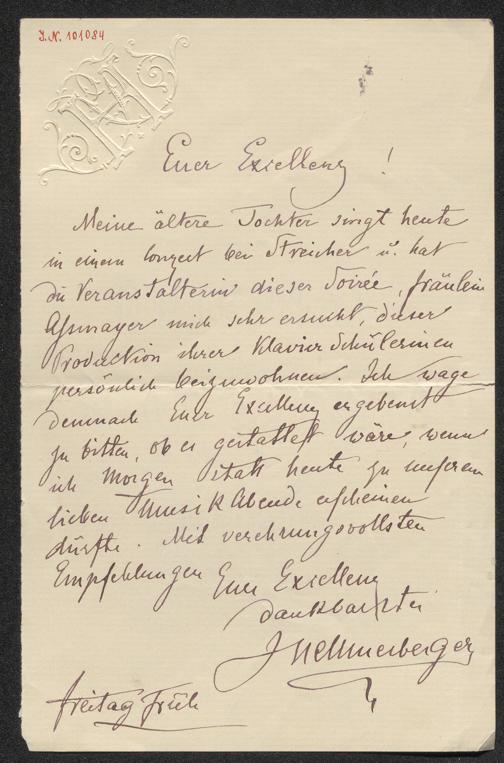 J.N. 101084
Euer Excellenz !
Meine ältere Tochter singt heute
in einem Conzert bei Streicher u. hat
die Veranstalterin dieser Soirée, Fräulein
Assmayer mich sehr ersucht, dieser
Production ihrer Klavier Schülerinen
persönlich beizuwohnen. Ich wage
demnach Euer Excellenz ergebenst
zu bitten, ob es gestattet wäre, wenn
ich Morgen statt heute zu unserem
lieben Musik Abende erscheinen
dürfte. Mit verehrungsvollsten
Empfehlungen Euer Excellenz
dankbarster
J Hellmesberger
Freitag Früh